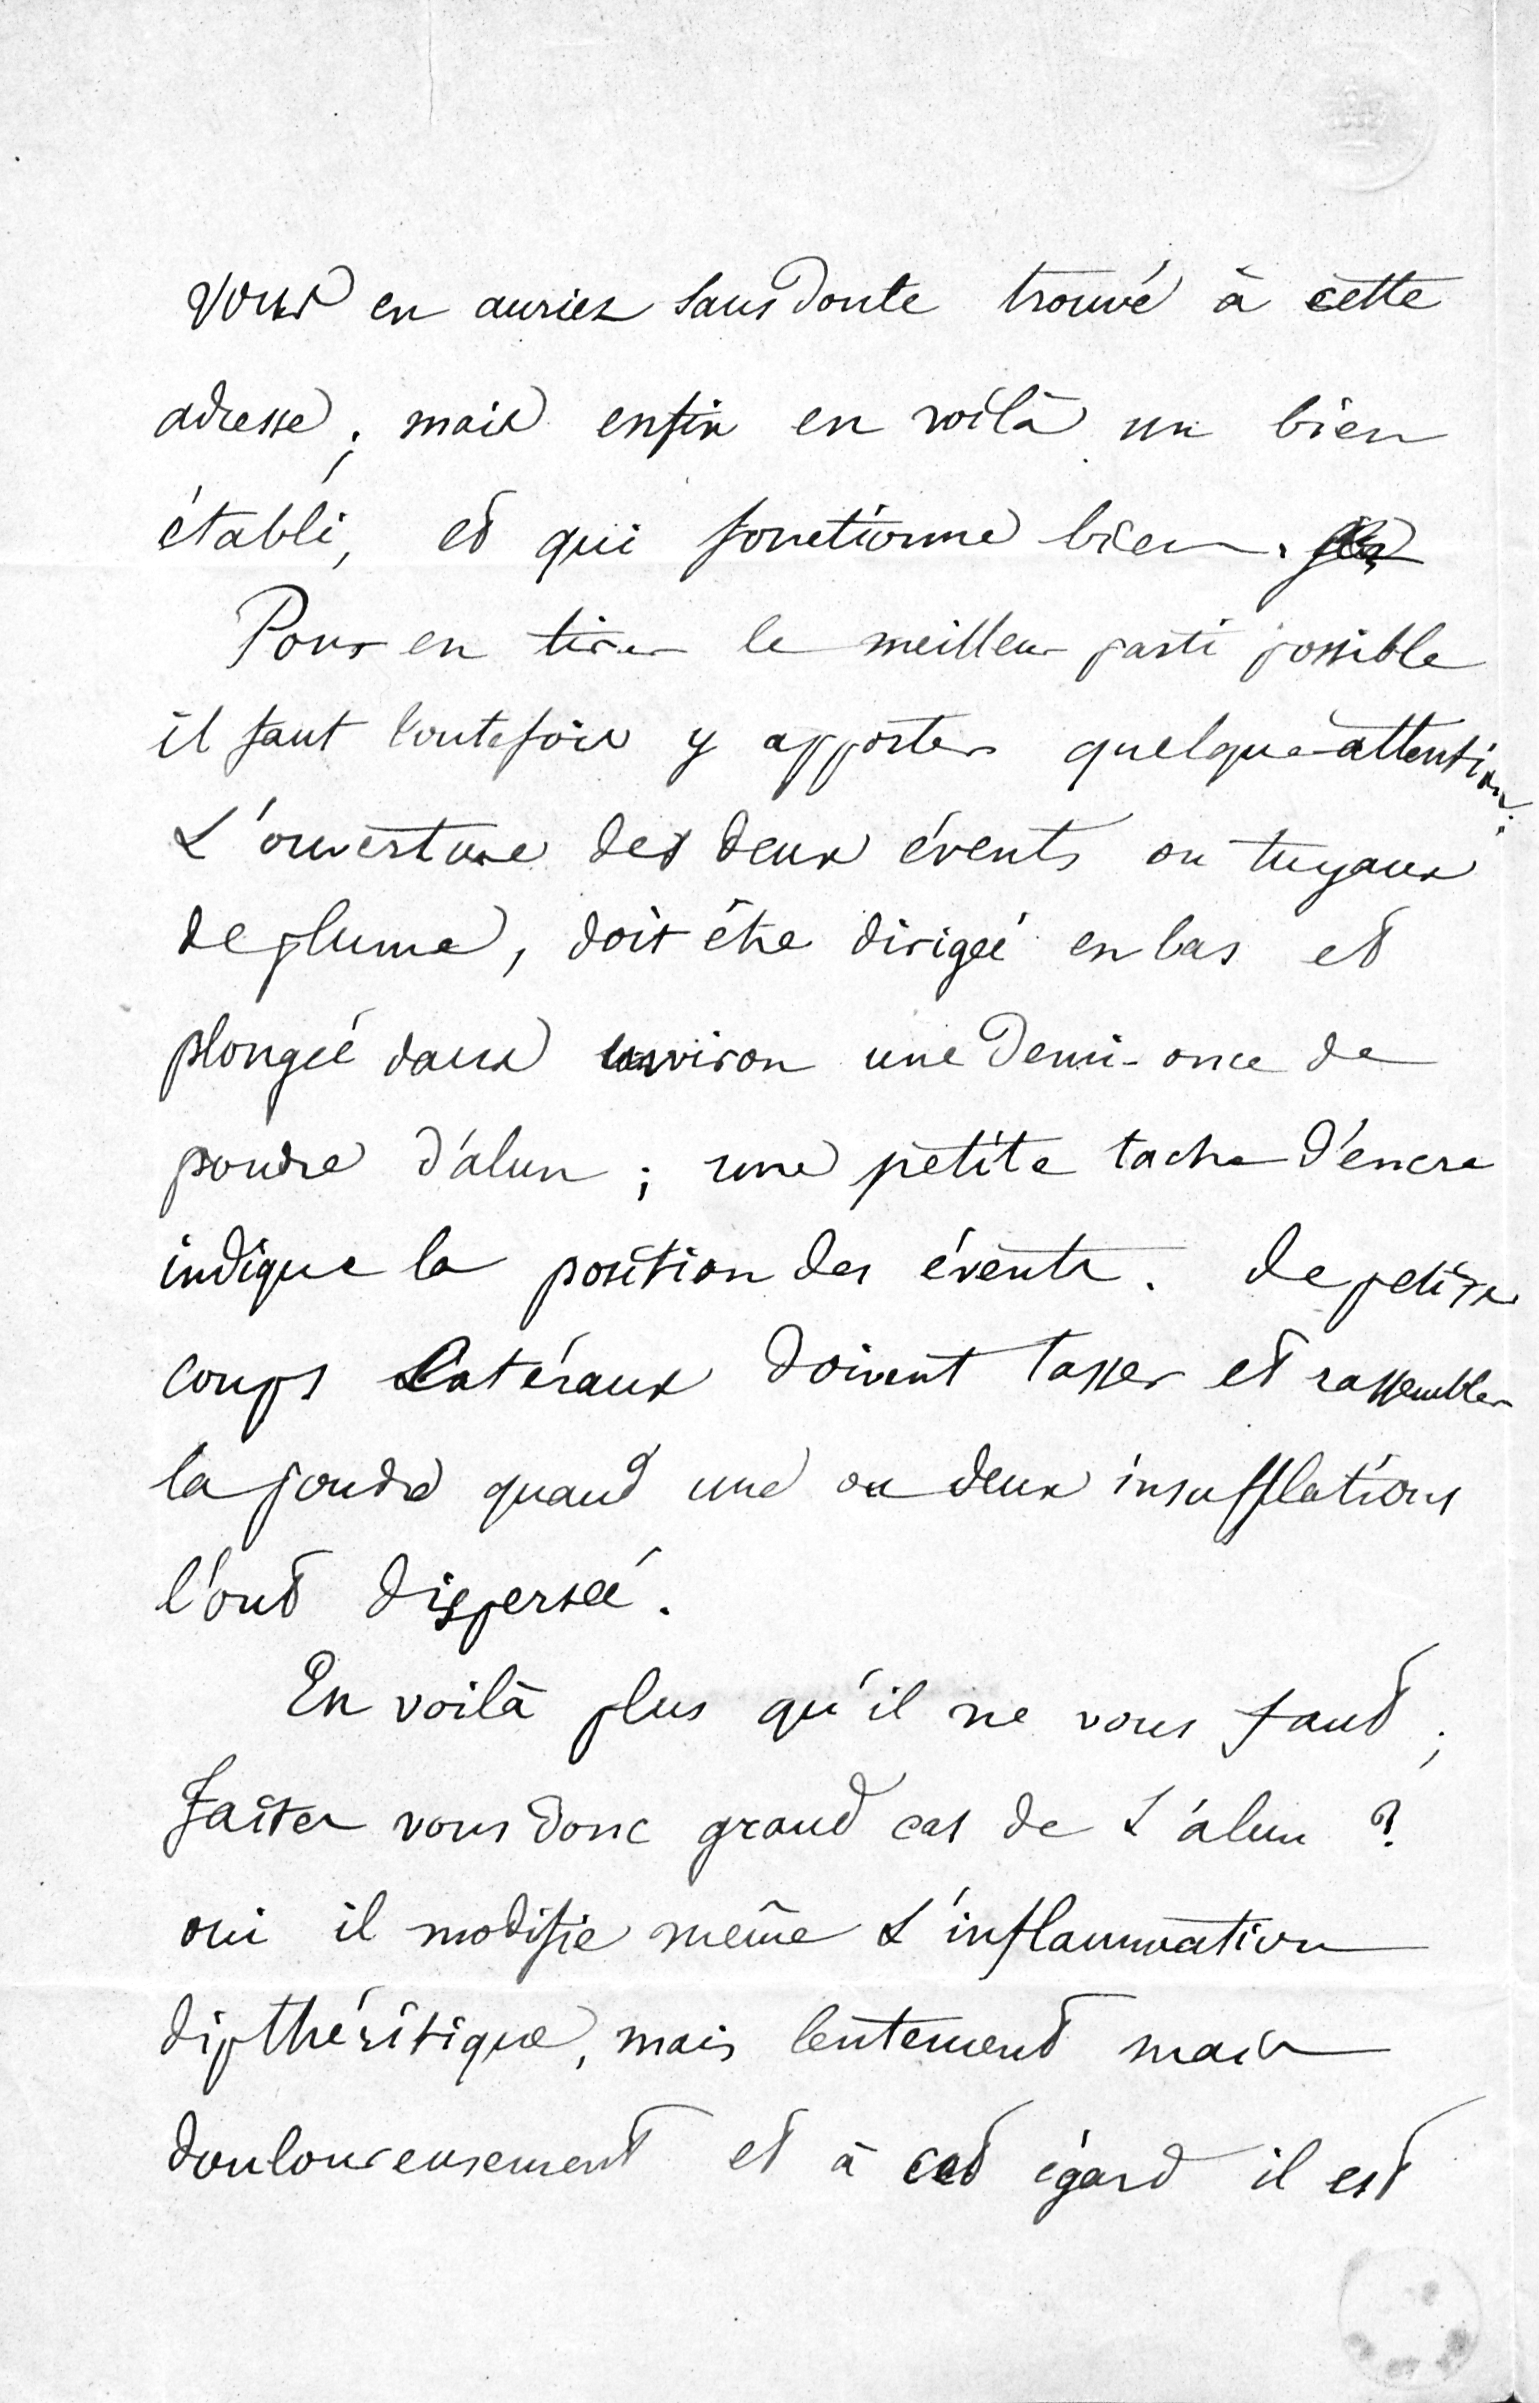 vous en auriez sans doute trouvé à cette
adresse ; mais enfin en voilà un bien
établi, et qui fonctionne bien.
Pour en tirer le meilleur parti possible
il faut toutefois y apporter quelque attention.
L'ouverture des deux évents ou tuyaux
de plume, doit être dirigée en bas et
plongée dans environ une demi-once de
poudre d'alun ; une petite tache d'encre
indique la position des évents. de petits
coups latéraux doivent tasser et rassembler
la poudre quand une ou deux insufflations
l'ont dispersée.
En voilà plus qu'il ne vous faut ;
faites vous donc grand cas de l'alun ?
oui il modifie même l'inflammation
dipthéritique, mais lentement mais
douloureusement et à cet égard il est